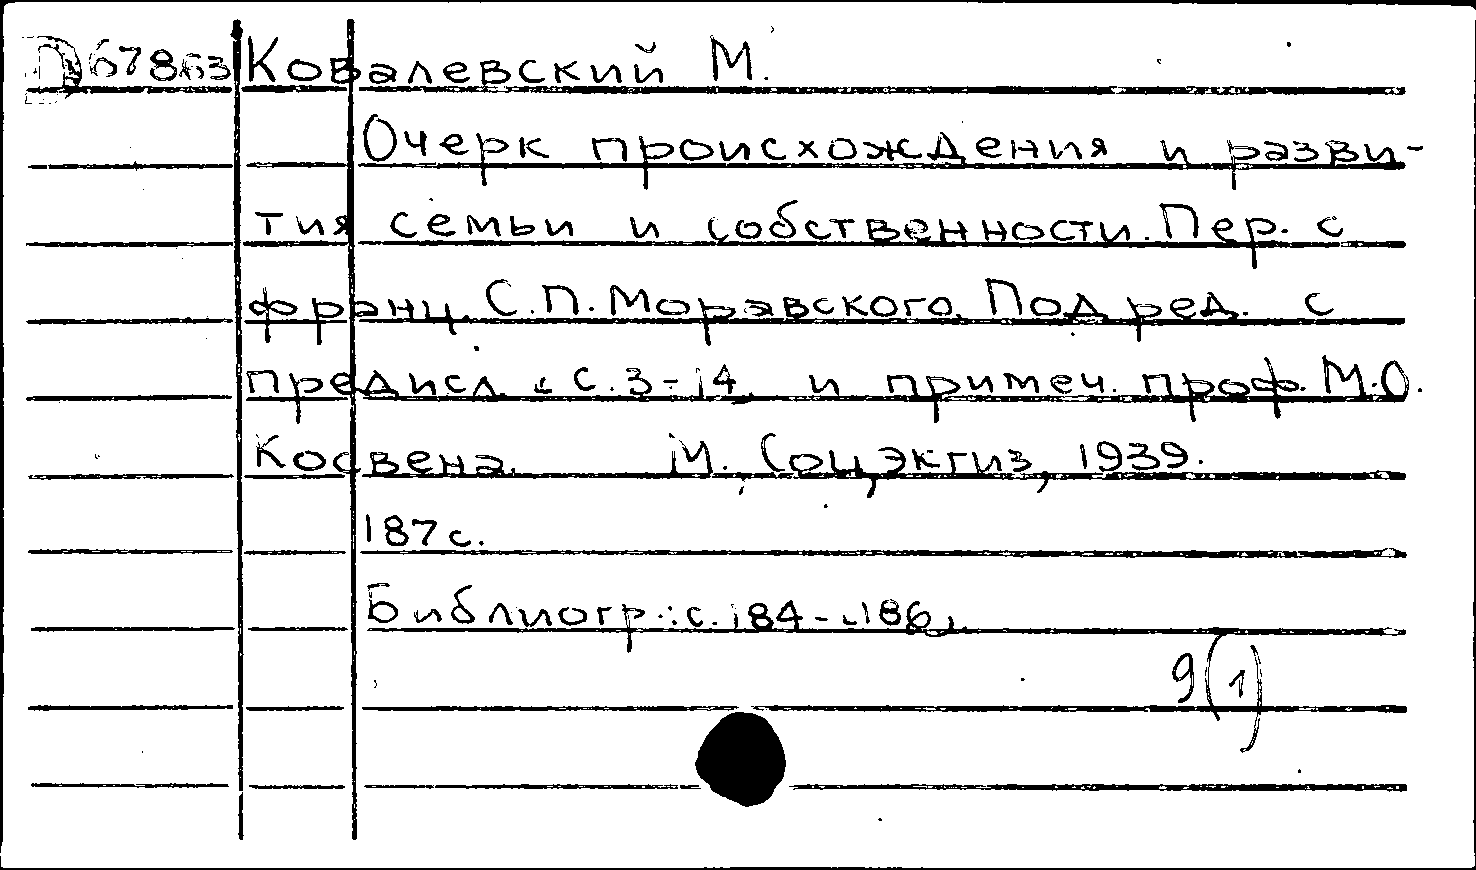 D 67863 Ковалевский М.
Очерк происхождения и разви-
тия семьи и собственности. Пер. с
франц. С.П. Моравского. Под ред. с
предисл. с. 3-14, и примеч. проф. М.О.
Косвена. М., Соцэкгиз, 1939.
187 с.
Библиогр.: с. 184-186.
9(1)